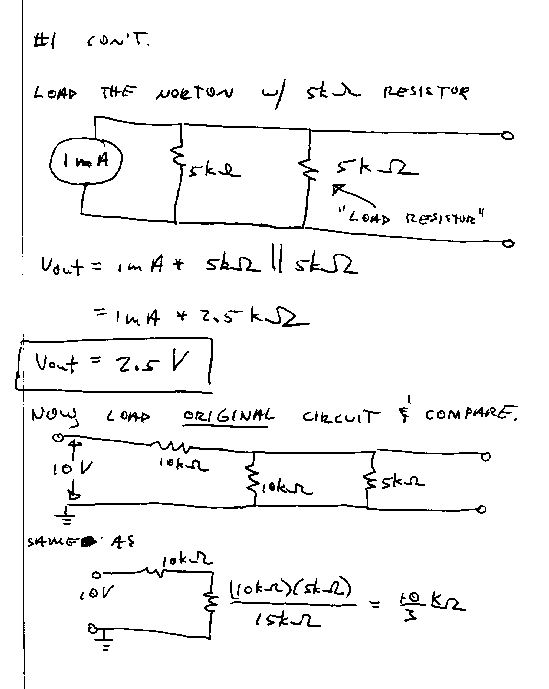 #1 CON'T.
LOAD THE NORTON w/ 5kΩ RESISTOR
1mA 5kΩ 5kΩ
"LOAD RESISTOR"
Vout = 1mA * 5kΩ || 5kΩ
= 1mA * 2.5kΩ
Vout = 2.5 V
NOW LOAD ORIGINAL CIRCUIT & COMPARE.
10V 10kΩ 10kΩ 5kΩ
SAME AS
10V 10kΩ (10kΩ)(5kΩ) / 15kΩ = 10/3 kΩ